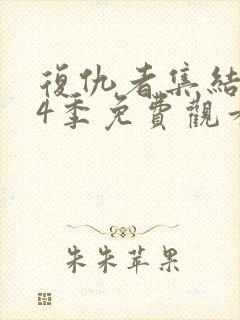 復仇者集結
4季免費觀
朱朱苹果